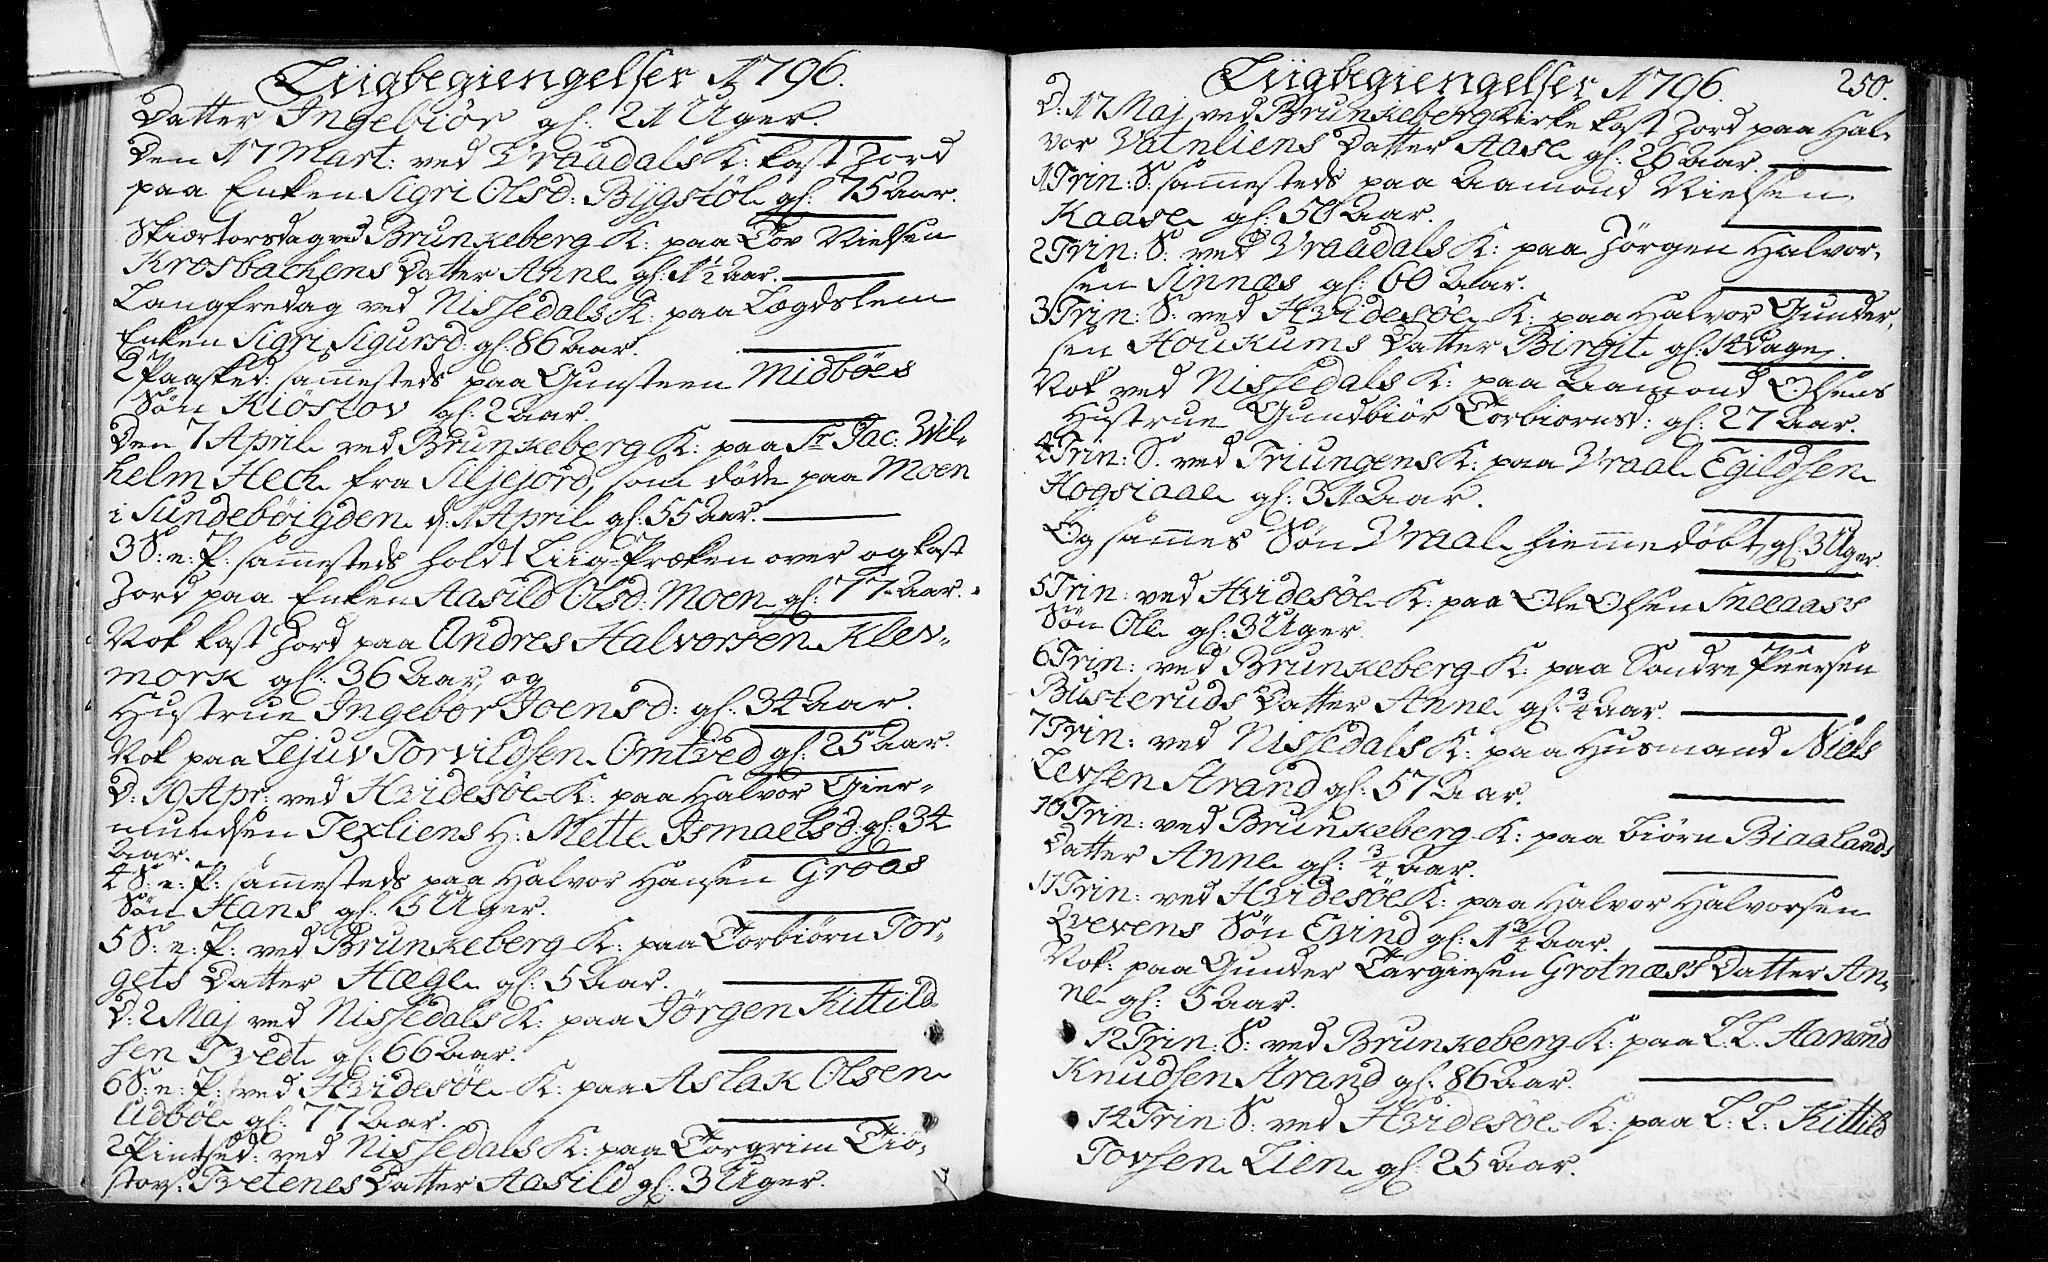 Liigbegiengelser 1796.
Datter Ingebiör gl: 21 Uger.
Den 17 Mart: ved Vraadals K: kast Jord
paa Enken Sigri Olsd: Bÿgstöl gl: 75 Aar.
Skiærtorsdag ved Brunkeberg K: paa Tov Nielsen
Krosbackens Datter Anne gl: 1½ Aar.
Langfredag ved Nissedals K: paa Lægdslem
Enken Sigri Sigursd: gl: 86 Aar.
2 Paasked: sammesteds paa Gunsteen Midböes
Sön Kiöstov gl: 2 Aar.
Den 7 April ved Brunkeberg K: paa Sr Jac: Wil-
helm Hech fra Siljejord, som døde paa Moen
i Sundeböigden d: 1 April gl: 55 Aar.
3 S: e: P: sammesteds holdt Liig-Præken over og kast
Jord paa Enken Aasild Olsd: Moen gl: 77 Aar.
Nok kast Jord paa Andres Halvorsen Klev-
mork gl: 36 Aar, og
Hustrue Ingebör Joensd: gl: 34 Aar.
Nok paa Lejuv Torvildsen Omtved gl: 25 Aar.
D: 19 Apr: ved Hvidesöe K: paa Halvor Gier-
mundsen Texliens H: Mette Ismaelsd: gl: 34
Aar.
4 S: e: P: sammesteds paa Halvor Hansen Groas
Sön Hans gl: 5 Uger.
5 S: e: P: ved Brunkeberg K: paa Torbiörn Tor-
gets Datter Hæge gl: 5 Aar.
D: 2 Maj ved Nissedals K: paa Jörgen Kittild-
sen Tvedt gl: 66 Aar.
6 S: e: P: ved Hvidesöe K: paa Aslak Olsen
Udböe gl: 77 Aar.
2 Pintsed: ved Nissedals K: paa Torgrim Tiö-
stovs: Tvetenes Datter Aasild gl: 3 Uger.
Liigbegiengelser 1796. 250.
D: 17 Maj ved Brunkeberg Kirke kast Jord paa Hal-
vor Vatnliens Datter Aase gl: 26 Aar.
1 Trin: S: sammesteds paa Aamond Nielsen
Kaase gl: 50 Aar.
2 Trin: S: ved Vraadals K: paa Jörgen Halvor-
sen Sinnæs gl: 60 Aar.
3 Trin: S: ved Hvidesöe K: paa Halvor Gunder-
sen Houkums Datter Birgit gl: 14 Dage.
Nok ved Nissedals K: paa Aamond Olsens
Hustrue Gundbiör Torbiornsd: gl: 27 Aar.
4 Trin: S. ved Triungens K: paa Vraal Egildsen
Hogsiaae gl: 31 Aar.
Og sammes Sön Vraal hiemmedöbt, gl: 3 Uger.
5 Trin: ved Hvidesöe K: paa Ole Olsen Sneeaass
Sön Ole gl: 3 Uger.
6 Trin: ved Brunkeberg K: paa Sondre Peersen
Busteruds Datter Anne gl: ¾ Aar.
7 Trin: ved Nissedals K: paa Husmand Niels
Levsen Strand gl: 57 Aar.
10 Trin: ved Brunkeberg K: paa Biörn Biaalands
Datter Anne gl: ¾ Aar.
11 Trin: ved Hvidesöe K: paa Halvor Halvorsen
Qvevens Sön Evind gl: 1¾ Aar.
Nok: paa Gunder Targiesen Grotnæss Datter An-
ne gl: 5 Aar.
12 Trin: S: ved Brunkeberg K: paa L. L. Aamund
Knudsen Strand gl: 86 Aar.
14 Trin: S: ved Hvidesöe K: paa L: L: Kittild
Tovsen Lien gl: 25 Aar.